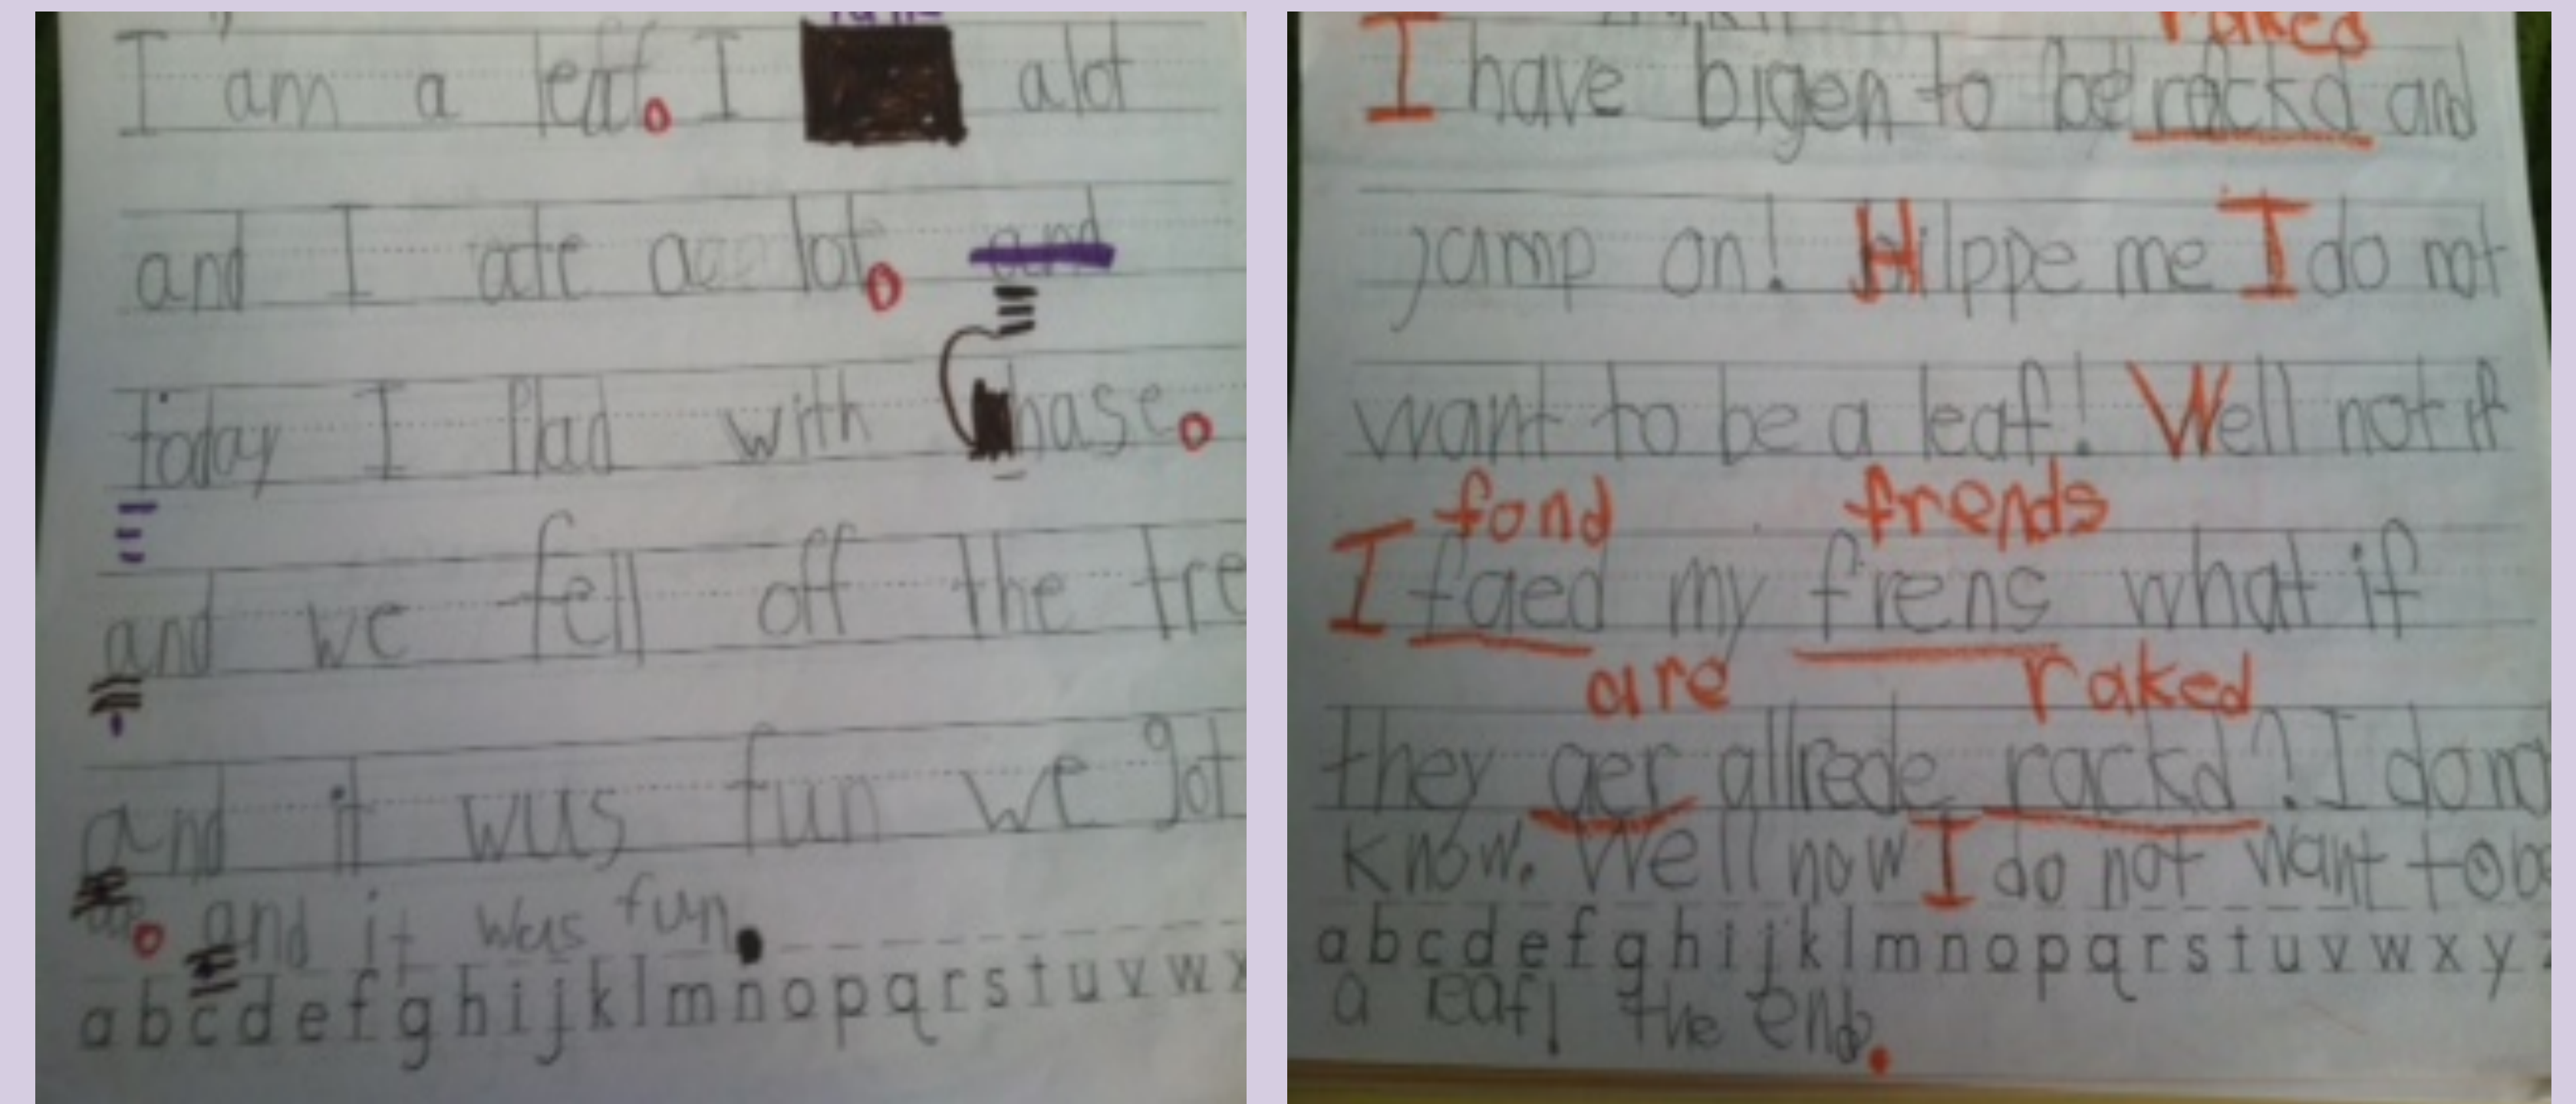 I am a leaf. I alot
and I ate a lot. and
today I Plad with hase.
and we fell off the tre
and it wus fun we got
and it wus fun.
a b c d e f g h i j k l m n o p q r s t u v w x
raked
I have bigen to be rackd and
jamp on! Hilppe me I do not
want to be a leaf! Well not if
fond frends
I faed my frens what if
are raked
they aer allrede rackd? I do no
know. Well now I do not want to be
a b c d e f g h i j k l m n o p q r s t u v w x y z
a leaf! the end.